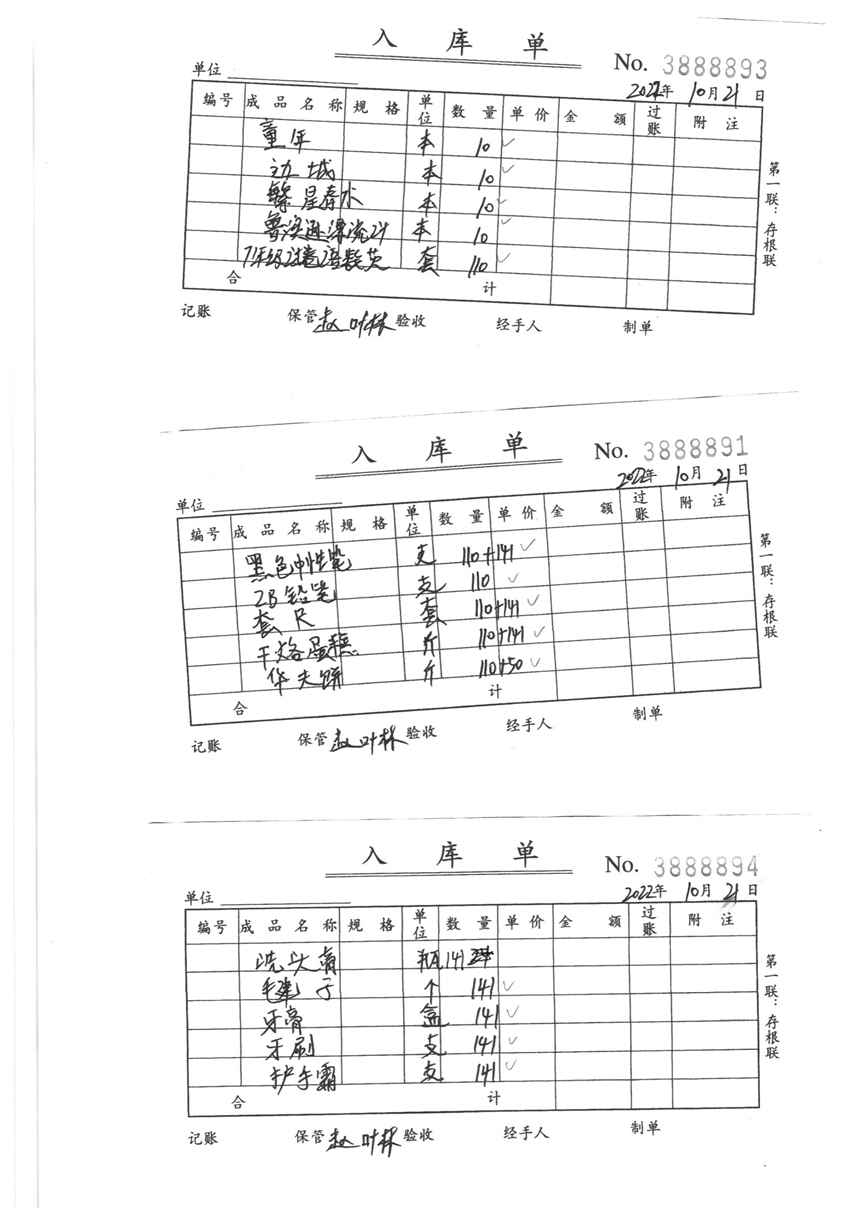 入 库 单
No. 3888893
单位
2022年 10月 21 日
编号 成品名称 规格 单位 数量 单价 金额 过账 附注
童年 本 10 ✓
边城 本 10 ✓
繁星春水 本 10 ✓
鲁滨逊漂流记 本 10 ✓
7年级试卷语数英 套 110 ✓
合 计
第一联：存根联
记账 保管 赵叶林 验收 经手人 制单
入 库 单
No. 3888891
2022年 10月 21 日
单位
编号 成品名称 规格 单位 数量 单价 金额 过账 附注
黑色中性笔 支 110+141 ✓
2B铅笔 支 110 ✓
套尺 套 110+141 ✓
干烙蛋糕 斤 110+141 ✓
华夫饼 斤 110+50 ✓
合 计
第一联：存根联
记账 保管 赵叶林 验收 经手人 制单
入 库 单
No. 3888894
单位
2022年 10月 21 日
编号 成品名称 规格 单位 数量 单价 金额 过账 附注
洗头膏 瓶 141
毛毽子 个 141 ✓
牙膏 盒 141 ✓
牙刷 支 141 ✓
护手霜 支 141 ✓
合 计
第一联：存根联
记账 保管 赵叶林 验收 经手人 制单